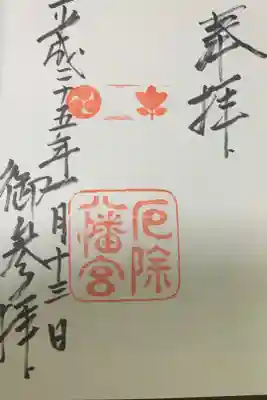 奉拝
厄除
八幡宮
平成二十五年一月十三日
御参拝